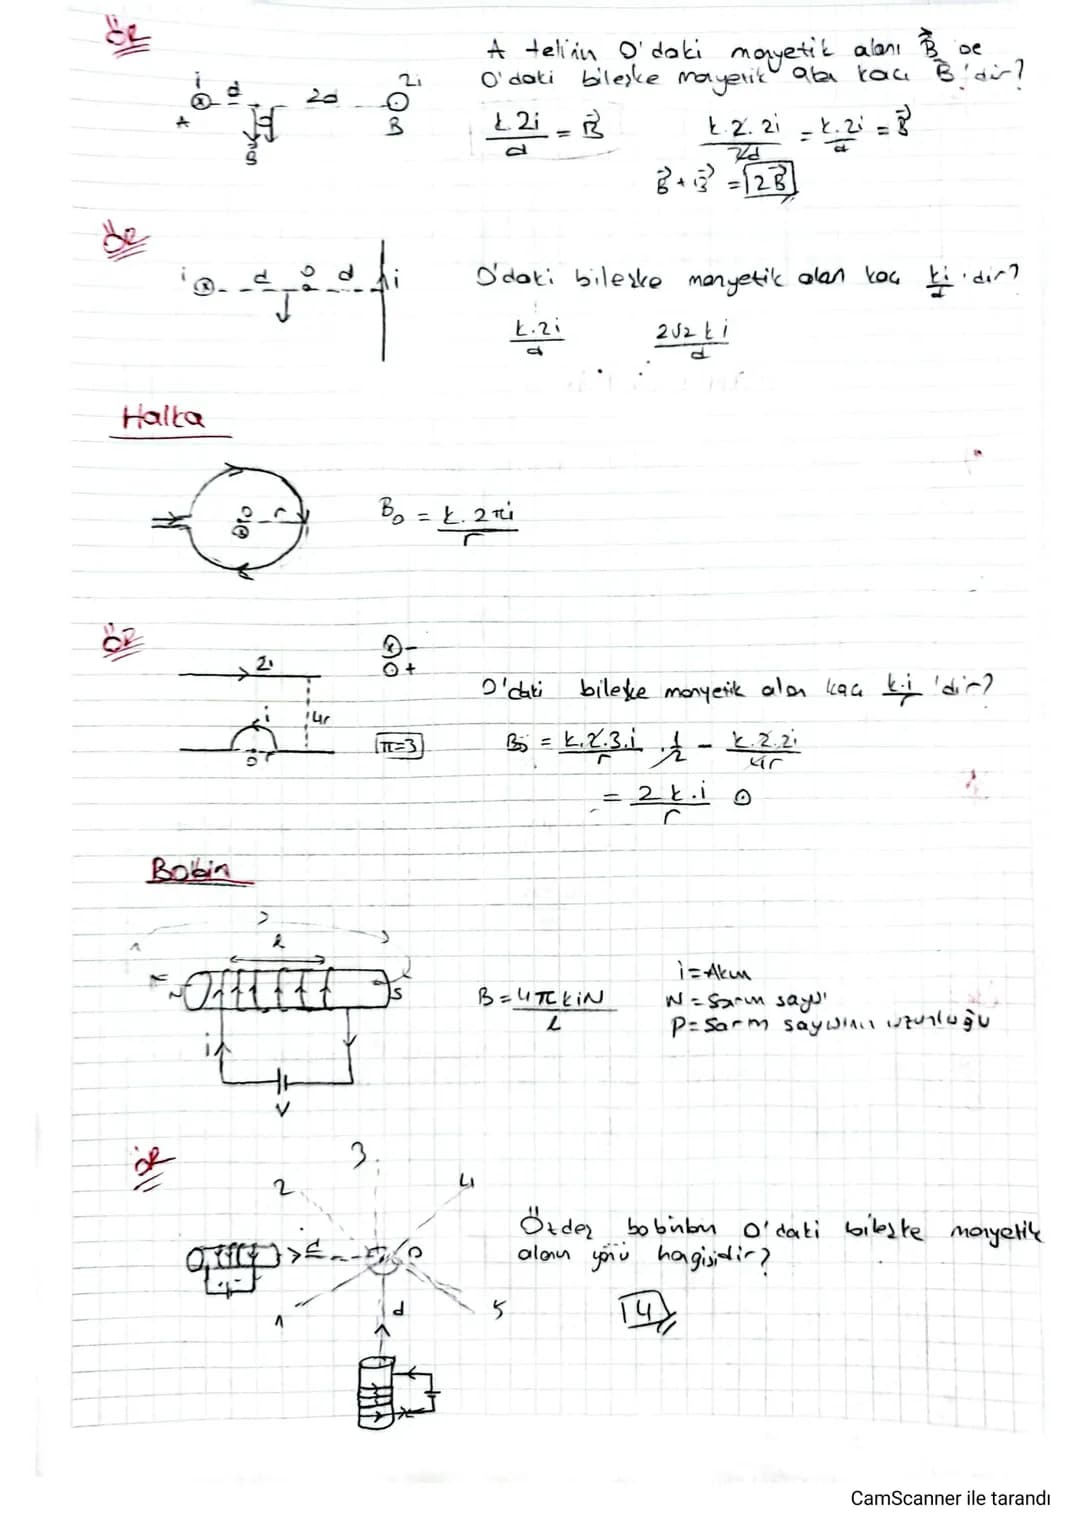 ÖR
A telinin O'daki manyetik alanı B ise
O'daki bileşke manyetik alan kaç B'dir?
i d 2d 2i
A B
B
k.2i/d = B
k.2.2i/2d = k.2i/d = B
B + B = 2B
ÖR
i d O d i
O'daki bileşke manyetik alan kaç ki/d 'dir?
k.2i/d
2√2 ki/d
Halka
O r
B₀ = k.2πi/r
ÖR
⊗ -
⊙ +
2i
i 4r
O r
π=3
O'daki bileşke manyetik alan kaç k.i/r 'dir?
B₀ = k.2.3.i/r . 1/2 - k.2.2i/4r
= 2k.i/r ⊙
Bobin
l
N S
i
V
B = 4πkiN/l
i = Akım
N = Sarım sayısı
P = Sarım sayısının uzunluğu
ÖR
1 2 3 4 5
d O
d
Özdeş bobinlerin O'daki bileşke manyetik
alanın yönü hangisidir?
4
CamScanner ile tarandı